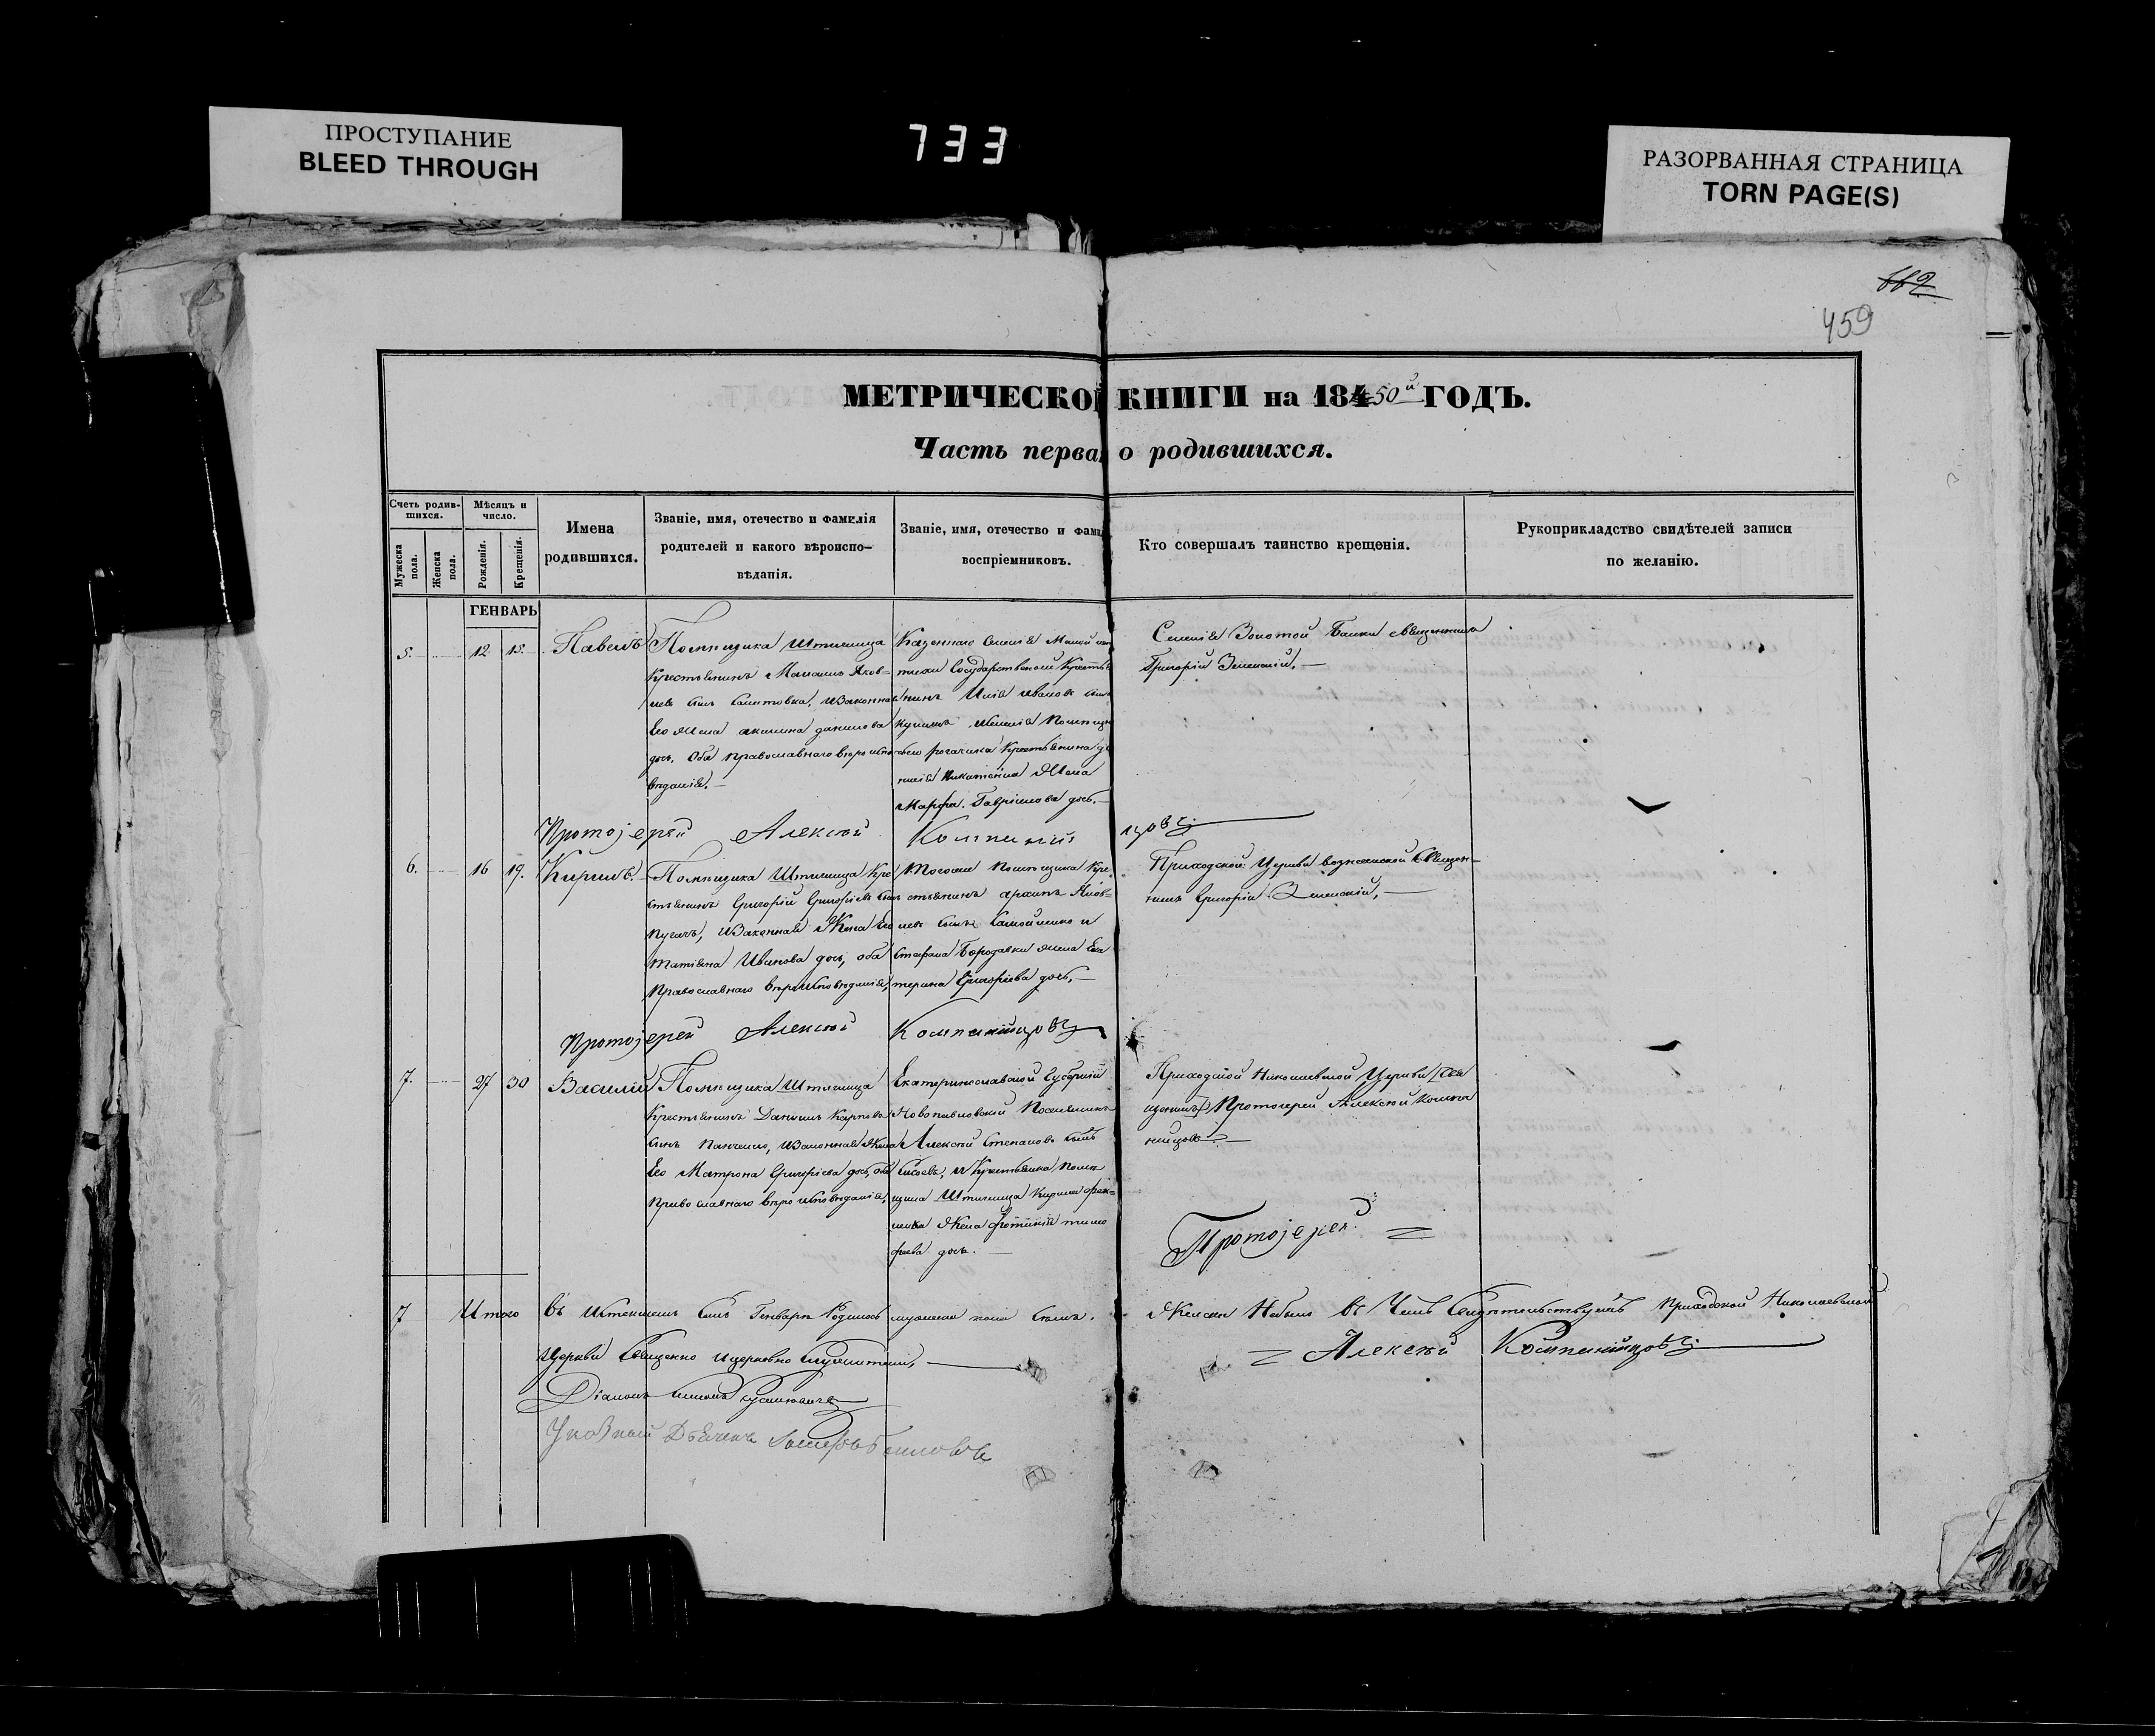 ПРОСТУПАНИЕ
BLEED THROUGH
733
РАЗОРВАННАЯ СТРАНИЦА
TORN PAGE(S)
459
МЕТРИЧЕСКОЙ КНИГИ на 18450й ГОДЪ.
Часть первая о родившихся.
Счетъ родив-
шихся.
Мужеска
пола.
Женска
пола.
Мѣсяцъ и
число.
Рожденія.
Крещенія.
Имена
родившихся.
Званіе, имя, отечество и фамилія
родителей и какого вѣроиспо-
вѣданія.
Званіе, имя, отечество и фами
воспріемниковъ.
Кто совершалъ таинство крещенія.
Рукоприкладство свидѣтелей записи
по желанію.
ГЕНВАРЬ
5. 12 15. Павелъ
Помѣщика Штиглица
Крестьянинъ Яков-
левъ сынъ законная
его жена акилина данилова
дочь, оба православнаго вѣроиспо-
вѣданія.
Казеннаго селенія
Государственной Крестья
нинъ Илія Ивановъ сынъ
имѣнія Помѣщи
Рогачика Крестьянина
Никитенка Жена
Марфа Гавріилова дочь.
Селенія Золотой Балки священникъ
Григорій Зеленскій.
Протоіерей Алексѣй Компанійцовъ
6. 16 19. Кирилъ.
Помѣщика Штиглица Кре
стьянинъ Григорій Григоріевъ сынъ
Пугачъ, Изаконная Жена его
Татіяна Иванова дочь, оба
Православнаго вѣроисповѣданія,
Тогоже Помѣщика Кре
стьянинъ архипъ Яков-
левъ сынъ Самойленко и
Стефана Бородавки жена Ека
терина Григоріева дочь.
Приходской Церкви вознесенской Священ-
никъ Григорій Зеленскій.
Протоіерей Алексѣй Компанійцовъ
7. 27 30 Василій
Помѣщика Штиглица
Крестьянинъ Даніилъ Карповъ
сынъ Панченко, Изаконная Жена
Его Матрона Григоріева дочь, оба
Православнаго вѣроисповѣданія,
Екатеринославской Губерніи
Новопавловскій Поселянинъ
Алексѣй Степановъ сынъ
и Крестьянина помѣ
щика Штиглица Кирила
Жена Фотинія тимо
феева дочь.
Приходской Николаевской Церкви
Протоіерей Алексѣй Компа
нійцовъ
Протоіерей
7 Итого въ Истекшемъ Генварѣ Родилось мужеска пола семь. Женска Небыло въ Чемъ Свидѣтельствуемъ Приходской Николаевской
Церкви Священно Ицерковно служители,
Алексѣй Компанійцовъ
Діаконъ
Указный Дьячекъ